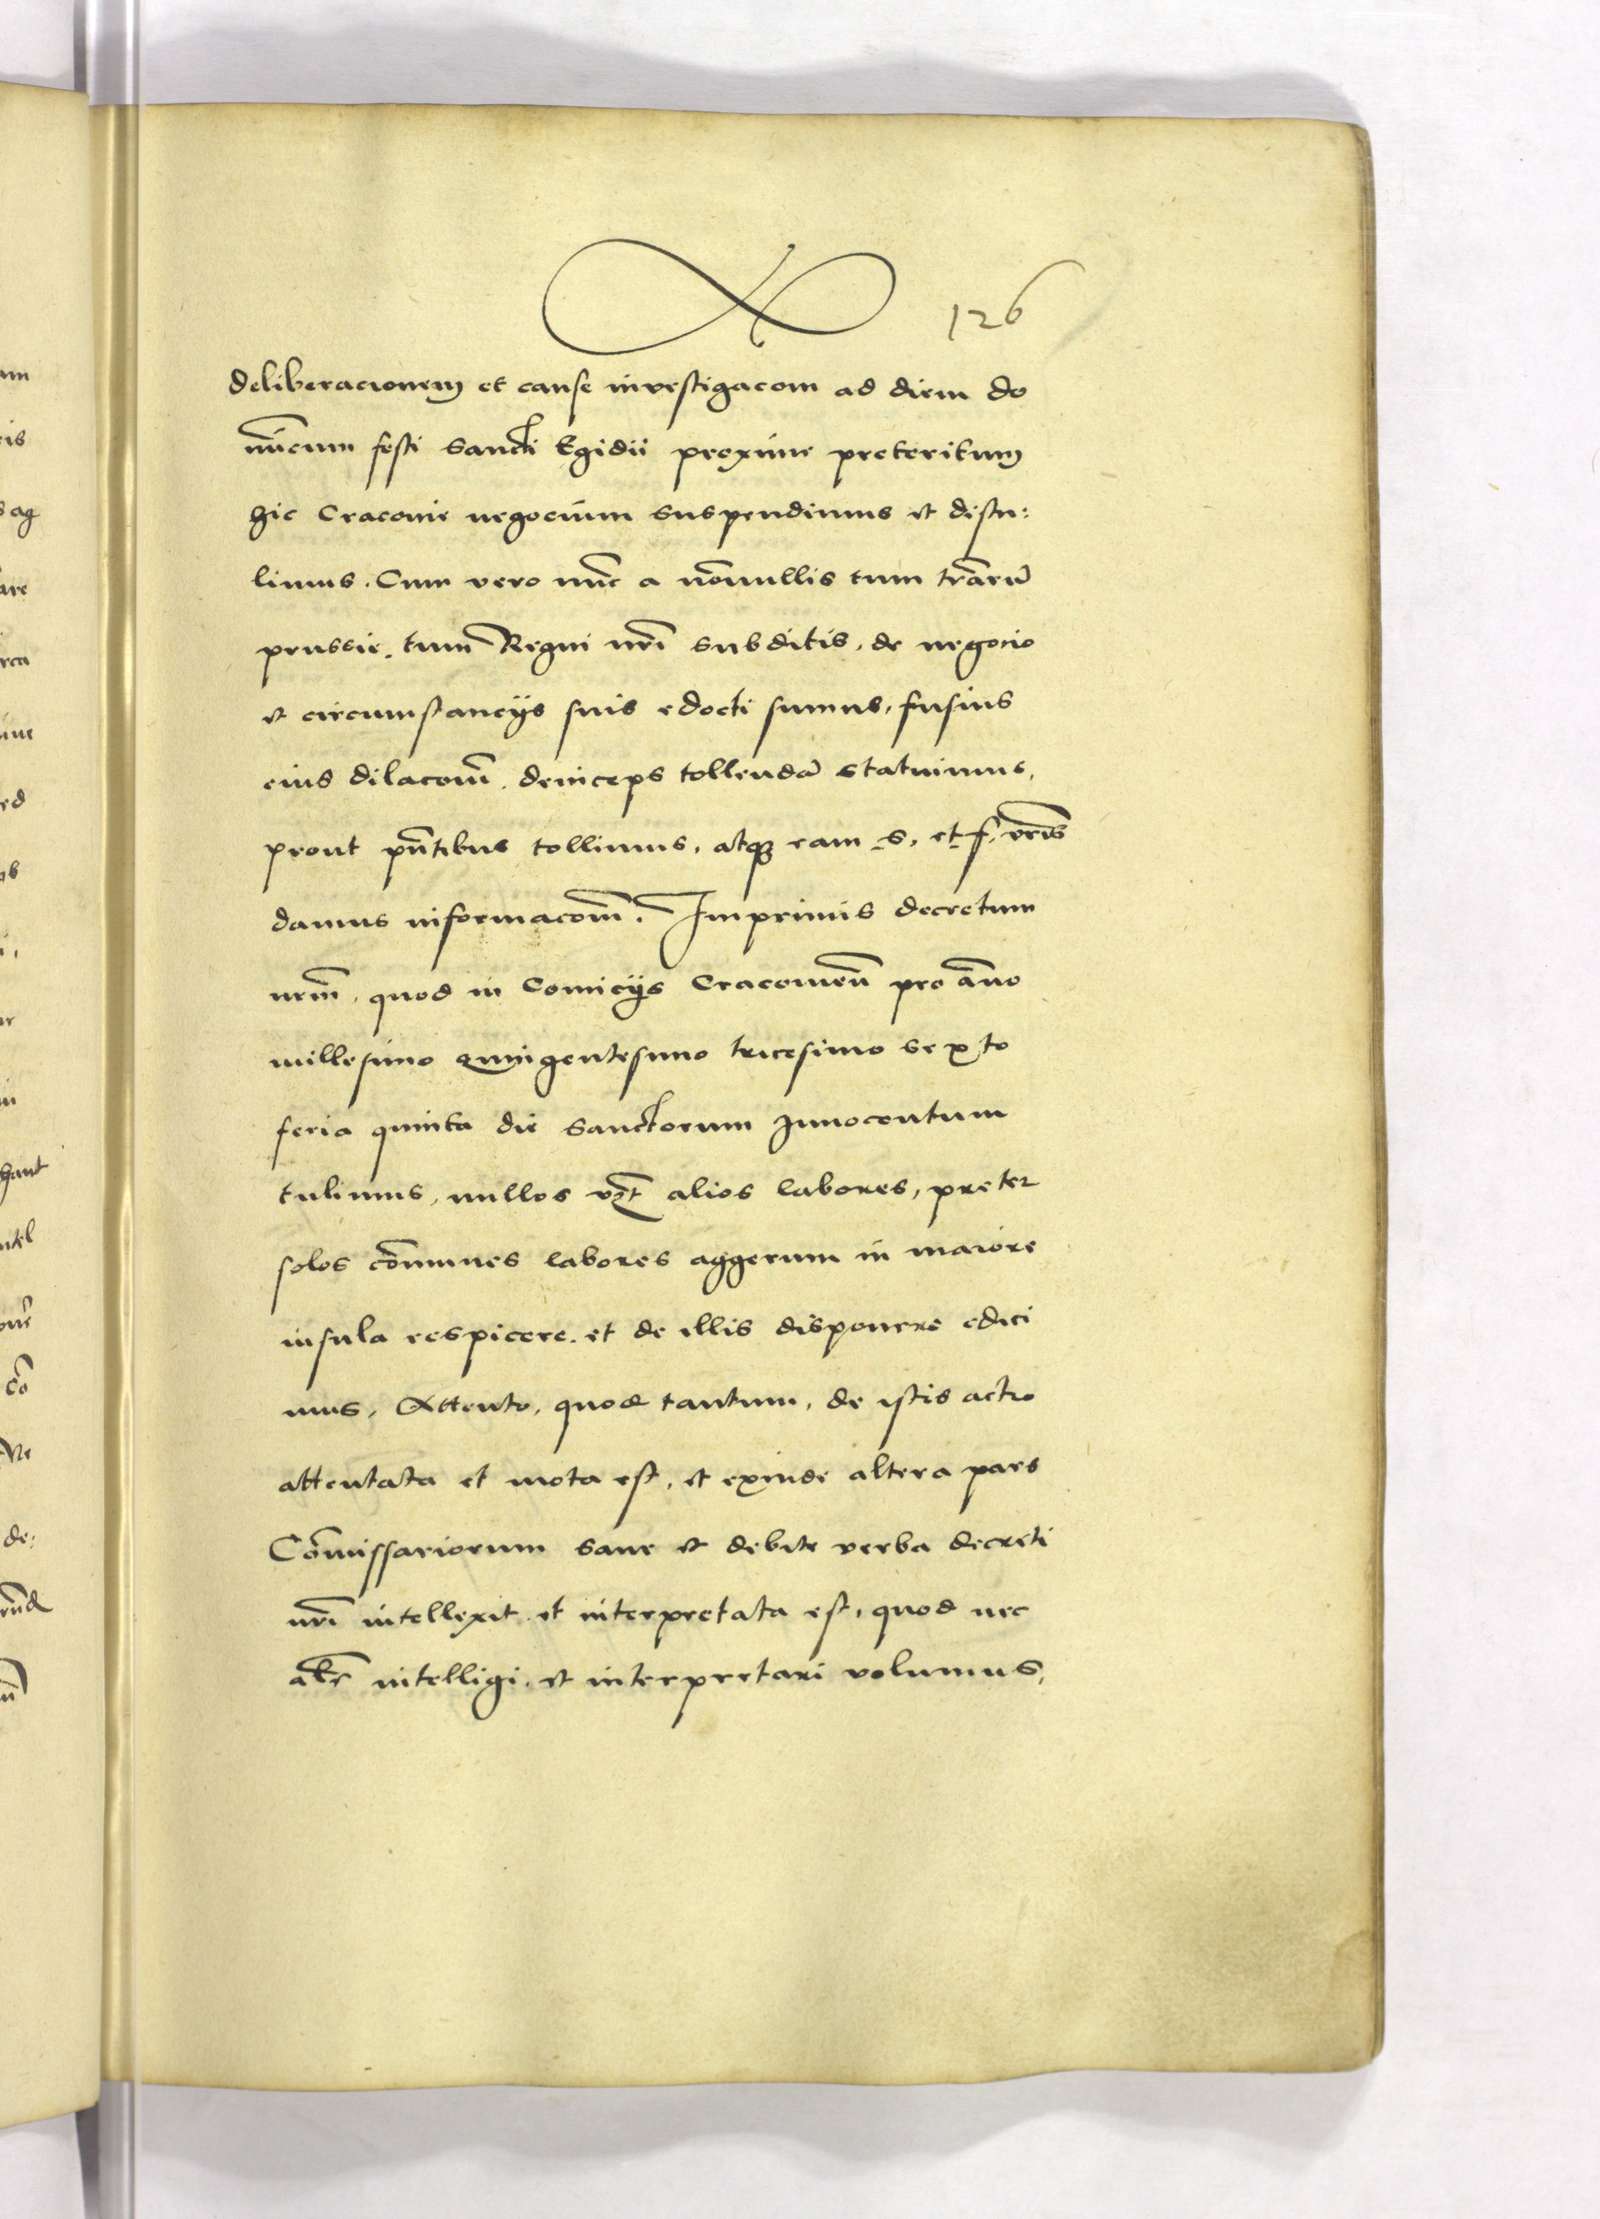 126
deliberacionem et causse investigacom ad diem do
minicum festi Sancti Egidii proxime preteritum
hic Cracovie negocium suspendimus et distu:
limus. Cum vero nũc a nõnullis tum trãrũ
prussie, tum Regni nr̃i subditis, de negocio
et circumstancijs suis edocti sumus, fusius
eius dilacom̃ deinceps tollendã statuimus,
prout pñtibus tollimus, atq₃ eam s. et f. vr̃is
damus informacom̃. Imprimis decretum
nrm̃, quod in Comicijs Cracovieñ pro ãno
millesimo quingentesimo tricesimo sexto
feria quinta die Sanctorum Innocentum
tulimus, nullos alios labores, preter
solos cõmunes labores aggerum in maiore
insula respicere, et de illis disponere edici
mus, Attento, quod tantum, de istis actio
attentata et mota est, et exinde altera pars
Cõmissariorum sane et debite verba decreti
nr̃i intellexit et interpretata est, quod nec
alr̃ intelligi, et interpretari volumus,